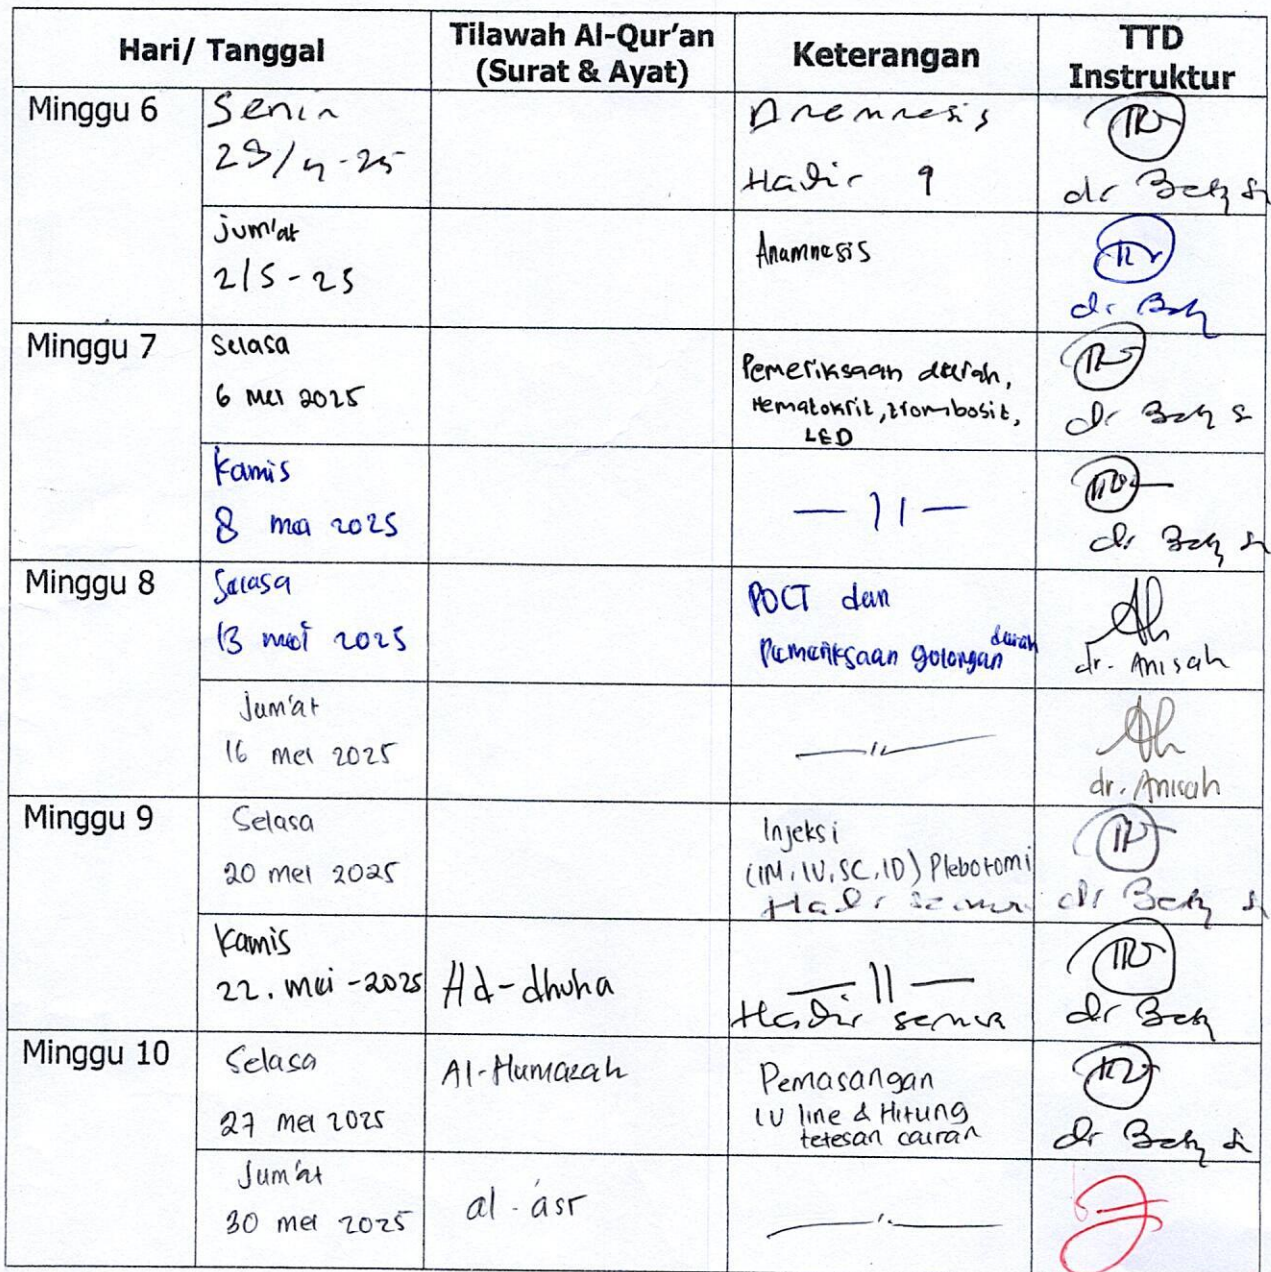 Hari/ Tanggal
Tilawah Al-Qur'an
(Surat & Ayat)
Keterangan
TTD
Instruktur
Minggu 6
Senin
28/4-25
Anemnesis
Hadir 9
dr
Jum'at
2/5-25
Anamnesis
dr
Minggu 7
Selasa
6 Mei 2025
Pemeriksaan darah,
Hematokrit, trombosit,
LED
dr
Kamis
8 mei 2025
— 11 —
dr
Minggu 8
Selasa
13 mei 2025
POCT dan
Pemeriksaan golongan darah
dr. Anisah
Jum'at
16 mei 2025
— 11 —
dr. Anisah
Minggu 9
Selasa
20 mei 2025
Injeksi
(IM, IV, SC, ID) Plebotomi
Hadir semua
dr
Kamis
22. mei - 2025
Ad-dhuha
— 11 —
Hadir semua
dr
Minggu 10
Selasa
27 mei 2025
Al-Humazah
Pemasangan
IV line & Hitung
tetesan cairan
dr
Jum'at
30 mei 2025
al-asr
— 11 —